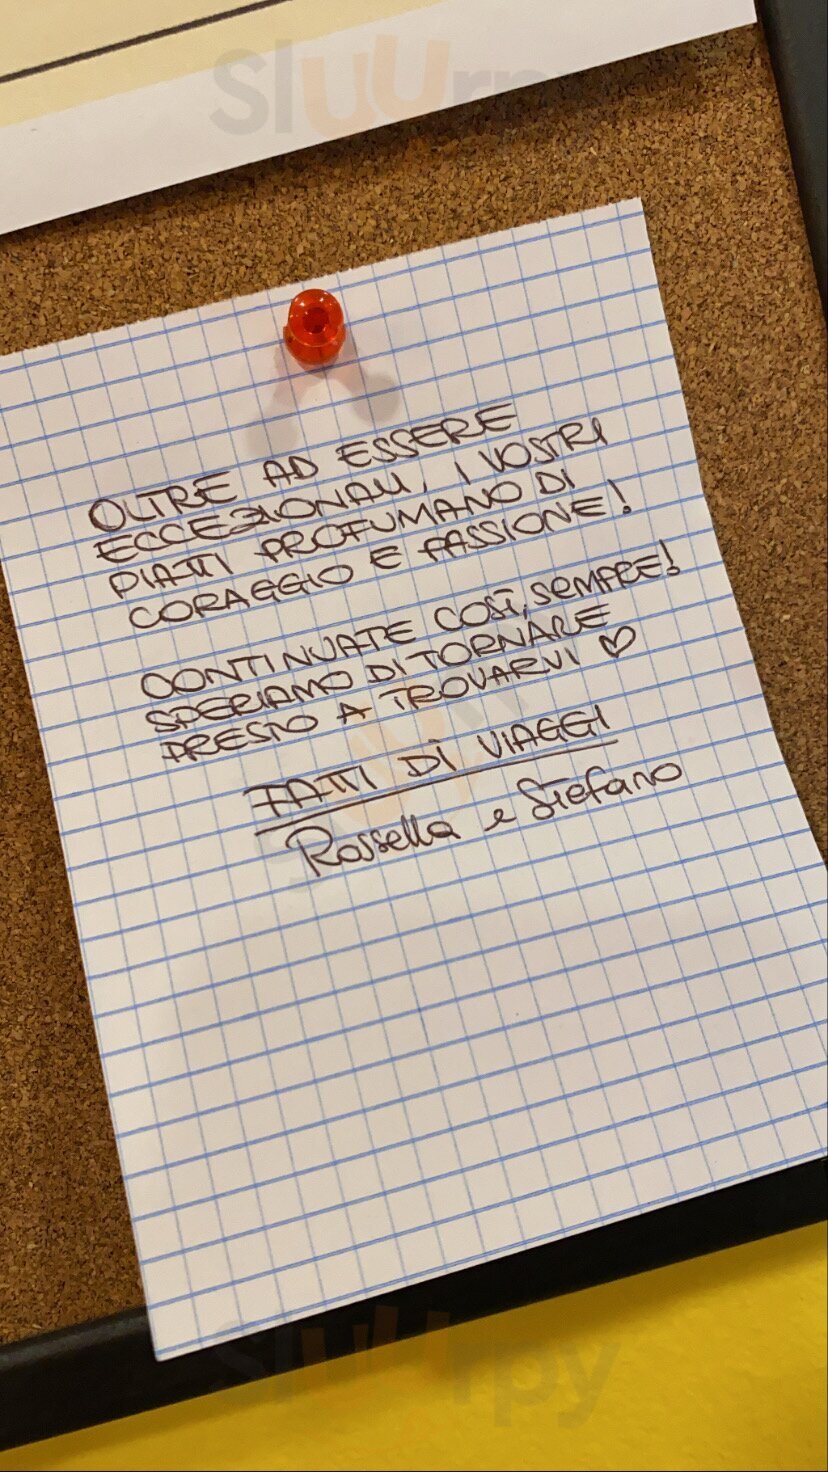 Sluurpy
OLTRE AD ESSERE
ECCEZIONALI, I VOSTRI
PIATTI PROFUMANO DI
CORAGGIO E PASSIONE!
CONTINUATE COSÌ, SEMPRE!
SPERIAMO DI TORNARE
PRESTO A TROVARVI ♡
FATTI DI VIAGGI
Rossella e Stefano
Sluurpy